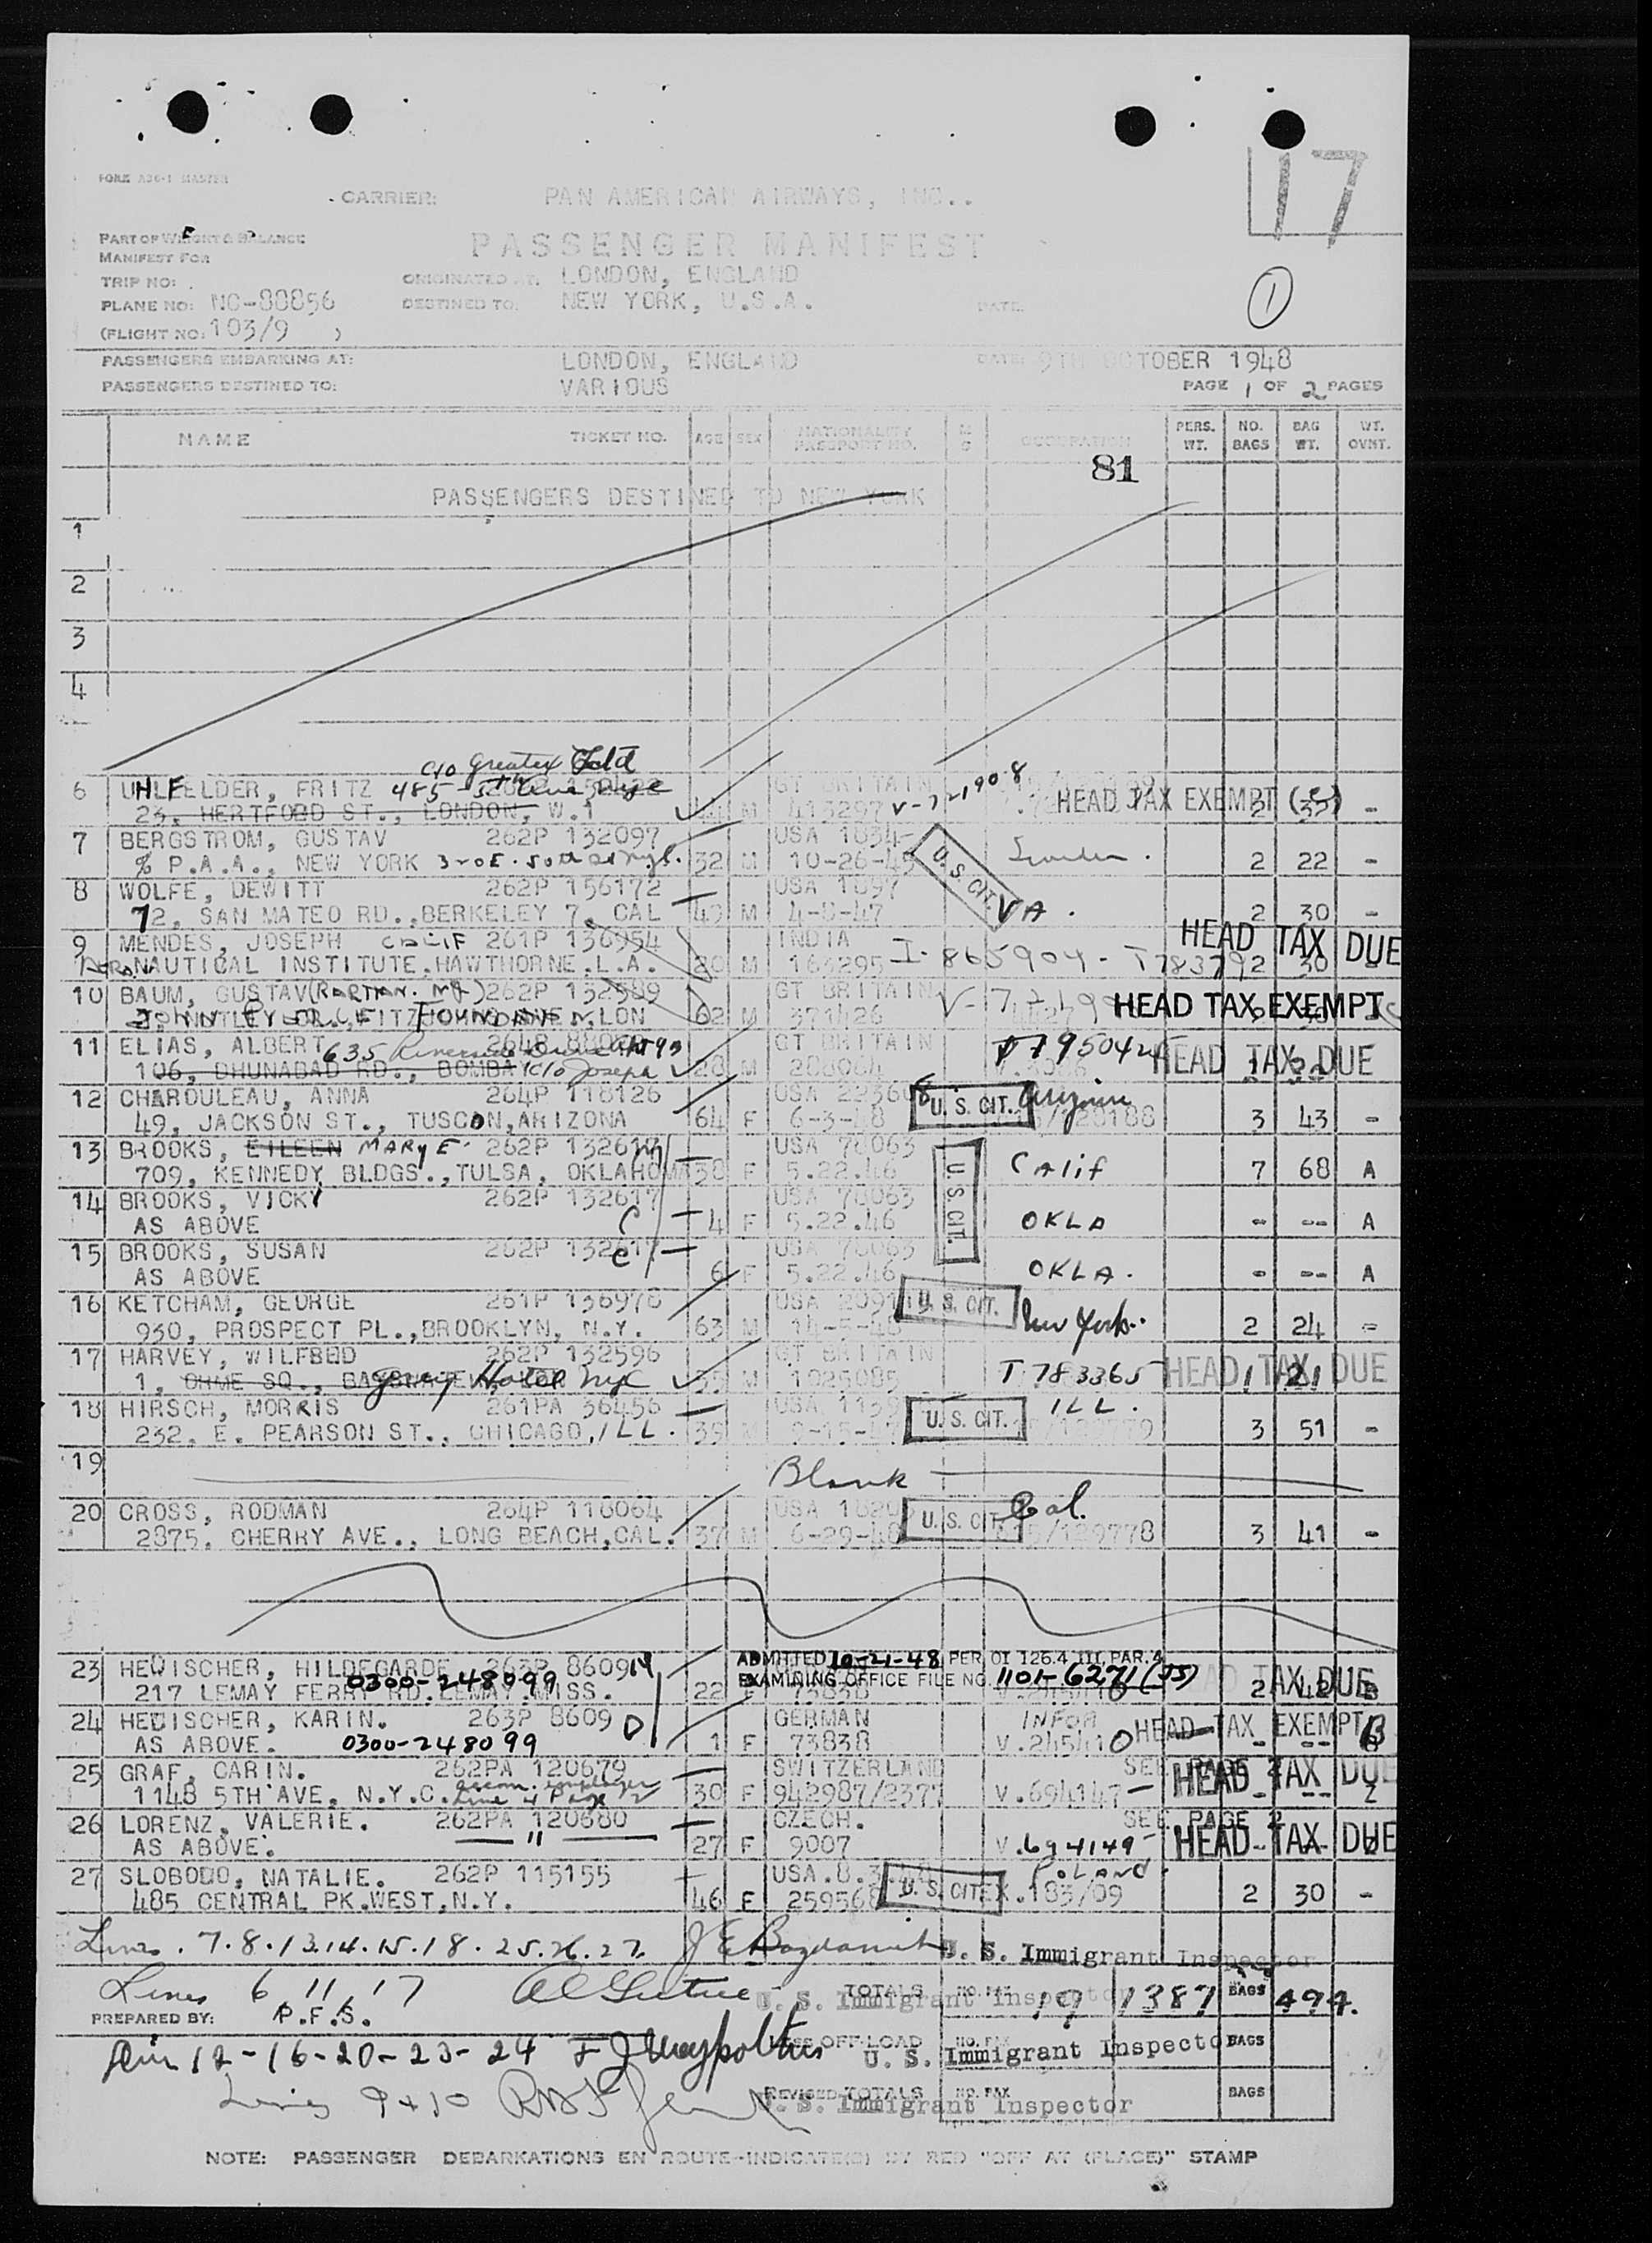 17
FORM A36-1 MASTER
CARRIER: PAN AMERICAN AIRWAYS, INC..
PART OF WEIGHT & BALANCE
MANIFEST FOR
PASSENGER MANIFEST
TRIP NO: ORIGINATED AT. LONDON, ENGLAND
PLANE NO: NC-88856 DESTINED TO: NEW YORK, U.S.A. DATE: 1
(FLIGHT NO: 103/9 )
PASSENGERS EMBARKING AT: LONDON, ENGLAND DATE: 9TH OCTOBER 1948
PASSENGERS DESTINED TO: VARIOUS PAGE 1 OF 2 PAGES
NAME TICKET NO. AGE SEX NATIONALITY PASSPORT NO. M S OCCUPATION PERS. WT. NO. BAGS BAG WT. WT. OVNT.
81
PASSENGERS DESTINED TO NEW YORK
1
2
3
4
c/o Greater
6 UHLFELDER, FRITZ 485-5th Ave GT BRITAIN
23, HERTFORD ST., LONDON, W.1 M 413297 HEAD TAX EXEMPT 2 -
7 BERGSTROM, GUSTAV 262P 132097 USA 1034
% P.A.A., NEW YORK 32 M 10-26-45 U.S. CIT. Sweden. 2 22 -
8 WOLFE, DEWITT 262P 156172 USA 1897
72, SAN MATEO RD., BERKELEY 7, CAL 49 M 4-8-47 VA. 2 30 -
9 MENDES, JOSEPH CALIF 261P 136954 INDIA HEAD TAX DUE
AERONAUTICAL INSTITUTE. HAWTHORNE. L.A. 20 M 163295 I-865904-T783779 2 30
10 BAUM, GUSTAV 262P 132589 GT BRITAIN HEAD TAX EXEMPT
LON 62 M 371426
11 ELIAS, ALBERT 635 Riverside Drive GT BRITAIN T795042 HEAD TAX DUE
106, DHUNABAD RD., BOMBAY c/o Joseph 28 M
12 CHAROULEAU, ANNA 264P 118126 USA U.S. CIT. Arizona
49, JACKSON ST., TUSCON, ARIZONA 64 F 6-3-48 3 43 -
13 BROOKS, EILEEN MARY E. 262P 132617 USA 78063
709, KENNEDY BLDGS., TULSA, OKLAHOMA 38 F 5.22.46 U.S. CIT. CALIF 7 68 A
14 BROOKS, VICKY 262P 132617 USA 78063
AS ABOVE 4 F 5.22.46 OKLA - -- A
15 BROOKS, SUSAN 262P 132617 USA 78063
AS ABOVE 6 F 5.22.46 OKLA. - -- A
16 KETCHAM, GEORGE 261P 136976 USA U.S. CIT. New York.
930, PROSPECT PL., BROOKLYN, N.Y. 63 M 14-5-48 2 24 -
17 HARVEY, WILFRED 262P 132596 GT BRITAIN
1, ORME SQ., Hotel NYC 35 M 1025085 T 783365 HEAD TAX DUE 1 21
18 HIRSCH, MORRIS 261PA 36456 USA ILL.
232, E. PEARSON ST., CHICAGO, ILL. 39 M U.S. CIT. 3 51 -
19 Blank
20 CROSS, RODMAN 264P 118064 USA Cal.
2875, CHERRY AVE., LONG BEACH, CAL. 37 M 6-29-48 U.S. CIT. /129778 3 41 -
23 HEWISCHER, HILDEGARDE 263P 8609 ADMITTED 10-21-48 PER. OI 126.4 III, PAR. 4
0300-248099 EXAMINING OFFICE FILE NO. 1101-6271 (JS) HEAD TAX DUE
217 LEMAY FERRY RD. LEMAY. MISS. 22 F 73838 2
24 HEWISCHER, KARIN. 263P 8609 GERMAN HEAD TAX EXEMPT
AS ABOVE. 0300-248099 1 F 73838 V.245410
25 GRAF, CARIN. 262PA 120679 SWITZERLAND SEE PAGE 2
1148 5TH AVE, N.Y.C. 30 F 942987/2377 V.694147 HEAD TAX DUE
26 LORENZ, VALERIE. 262PA 120680 CZECH. SEE PAGE 2
AS ABOVE. " 27 F 9007 V.694149 HEAD TAX DUE
27 SLOBODO, NATALIE. 262P 115155 USA. POLAND.
485 CENTRAL PK.WEST, N.Y. 46 F 259568 U.S. CIT. 2 30 -
Lines. 7.8.13.14.15.18.25.26.27. U. S. Immigrant Inspector
Lines 6, 11, 17 U. S. Immigrant Inspector TOTALS NO. PAX 19 1387 BAGS 494.
PREPARED BY: P.F.S.
12-16-20-23-24 U. S. Immigrant Inspector OFF-LOAD NO. PAX BAGS
Lines 9+10 U. S. Immigrant Inspector REVISED TOTALS NO. PAX BAGS
NOTE: PASSENGER DEBARKATIONS EN ROUTE-INDICATE(S) BY RED "OFF AT (PLACE)" STAMP